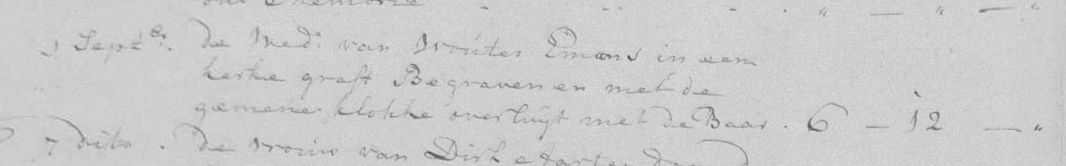 " — " — "
1 Septbr. de Wed: van Wouter Emans in een
kerke graft Begraven en met de
gemene klokke overluyt met de Baar. 6 — 12 — "
7 dito. de vrouw van Dirk